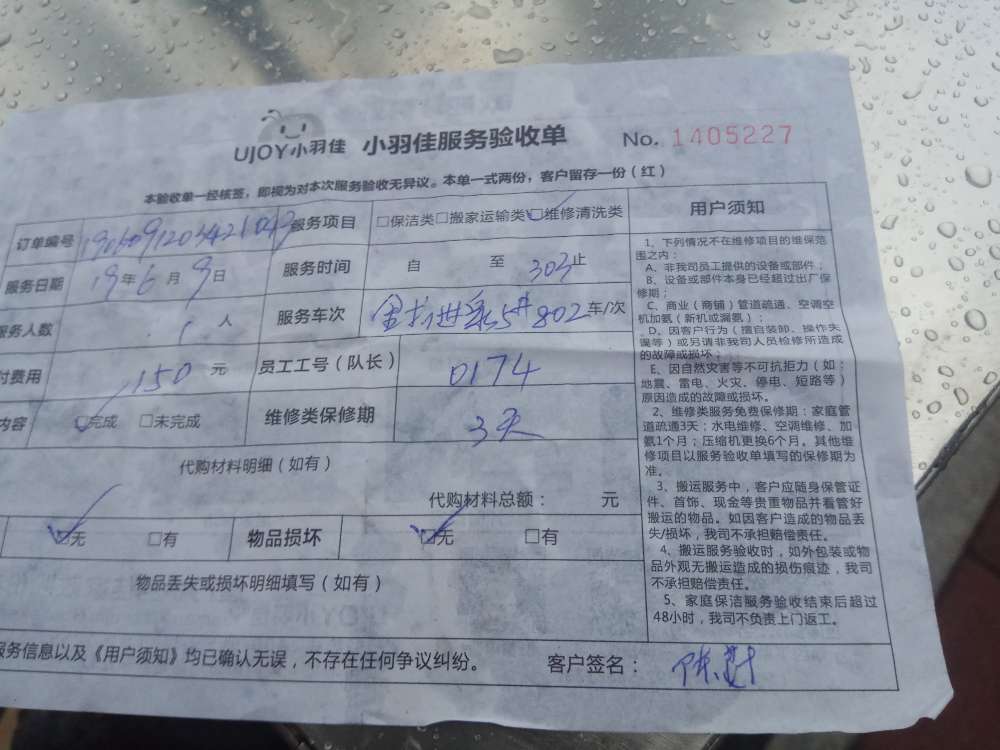 UJOY小羽佳 小羽佳服务验收单 No. 1405227
本验收单一经核签，即视为对本次服务验收无异议。本单一式两份，客户留存一份（红）
订单编号 服务项目 □保洁类□搬家运输类□维修清洗类
服务日期 19年6月9日 服务时间 自 至 303止
服务人数 1 人 服务车次 802车/次
付费用 150 元 员工工号（队长） 0174
内容 □完成 □未完成 维修类保修期 3天
代购材料明细（如有）
代购材料总额： 元
□无 □有 物品损坏 □无 □有
物品丢失或损坏明细填写（如有）
服务信息以及《用户须知》均已确认无误，不存在任何争议纠纷。 客户签名：
用户须知
1、下列情况不在维修项目的维保范
围之内：
A、非我司员工提供的设备或部件；
B、设备或部件本身已经超过出厂保
修期；
C、商业（商铺）管道疏通、空调空
机加氨（新机或漏氨）；
D、因客户行为（擅自装卸、操作失
误等）或另请非我司人员检修所造成
的故障或损坏；
E、因自然灾害等不可抗拒力（如：
地震、雷电、火灾、停电、短路等）
原因造成的故障或损坏。
2、维修类服务免费保修期：家庭管
道疏通3天；水电维修、空调维修、加
氨1个月；压缩机更换6个月。其他维
修项目以服务验收单填写的保修期为
准。
3、搬运服务中，客户应随身保管证
件、首饰、现金等贵重物品并看管好
搬运的物品。如因客户造成的物品丢
失/损坏，我司不承担赔偿责任。
4、搬运服务验收时，如外包装或物
品外观无搬运造成的损伤痕迹，我司
不承担赔偿责任。
5、家庭保洁服务验收结束后超过
48小时，我司不负责上门返工。